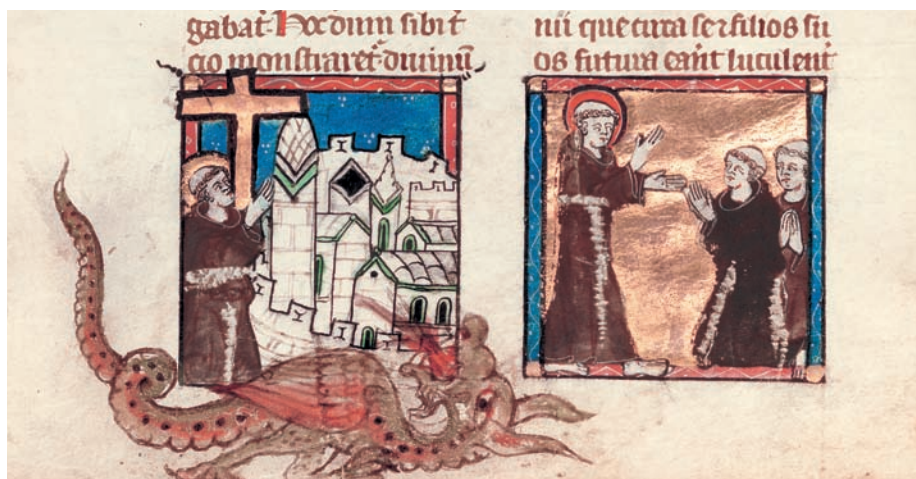 gabat. Hoc dum sibi t̛
cio monstraret᷑ diuinū
nii que circa se ⁊ filios su
os futura erant luculent̛